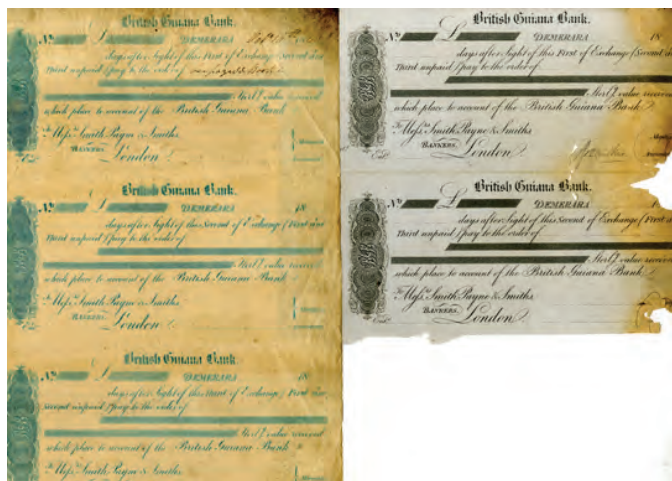 British Guiana Bank.
No £
DEMERARA
days after Sight of this First of Exchange (Second and
Third unpaid) pay to the order of
Sterl.g value received
which place to account of the British Guiana Bank
To Mess.rs Smith Payne & Smiths
BANKERS,
London
British Guiana Bank.
No £
DEMERARA 18
days after Sight of this Second of Exchange (First and
Third unpaid) pay to the order of
Sterl.g value received
which place to account of the British Guiana Bank
To Mess.rs Smith Payne & Smiths
BANKERS,
London
British Guiana Bank.
No £
DEMERARA 18
days after Sight of this Third of Exchange (First and
Second unpaid) pay to the order of
Sterl.g value received
which place to account of the British Guiana Bank
To Mess.rs Smith Payne & Smiths
British Guiana Bank.
No £
DEMERARA 18
days after Sight of this First of Exchange (Second and
Third unpaid) pay to the order of
Sterl.g value received
which place to account of the British Guiana Bank
To Mess.rs Smith Payne & Smiths
BANKERS,
London
British Guiana Bank.
No £
DEMERARA
days after Sight of this Second of Exchange (First and
Third unpaid) pay to the order of
Sterl.g value received
which place to account of the British Guiana Bank
To Mess.rs Smith Payne & Smiths
BANKERS,
London